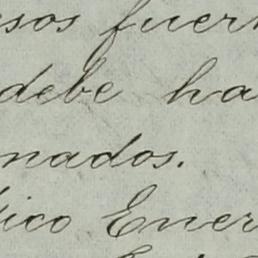 sos fuer
debe ha
nados.
ico Ener